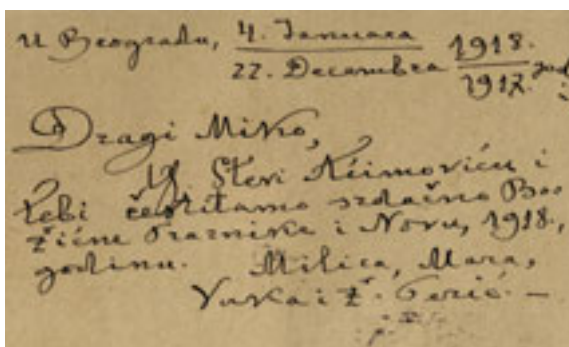 U Beogradu, 4. Januara 1918.
22. Decembra 1917. god
Dragi Miko,
Stevi Aćimoviću i
tebi čestitamo srdačno Bo-
žićne Praznike i Novu, 1918.,
godinu. Milica, Mara,
Vuka i Ž. Perić. —